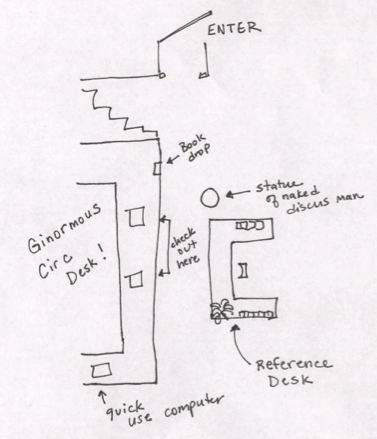 ENTER
Book
drop
statue
of naked
discus man
Ginormous
Circ
Desk!
check
out
here
Reference
Desk
quick
use computer